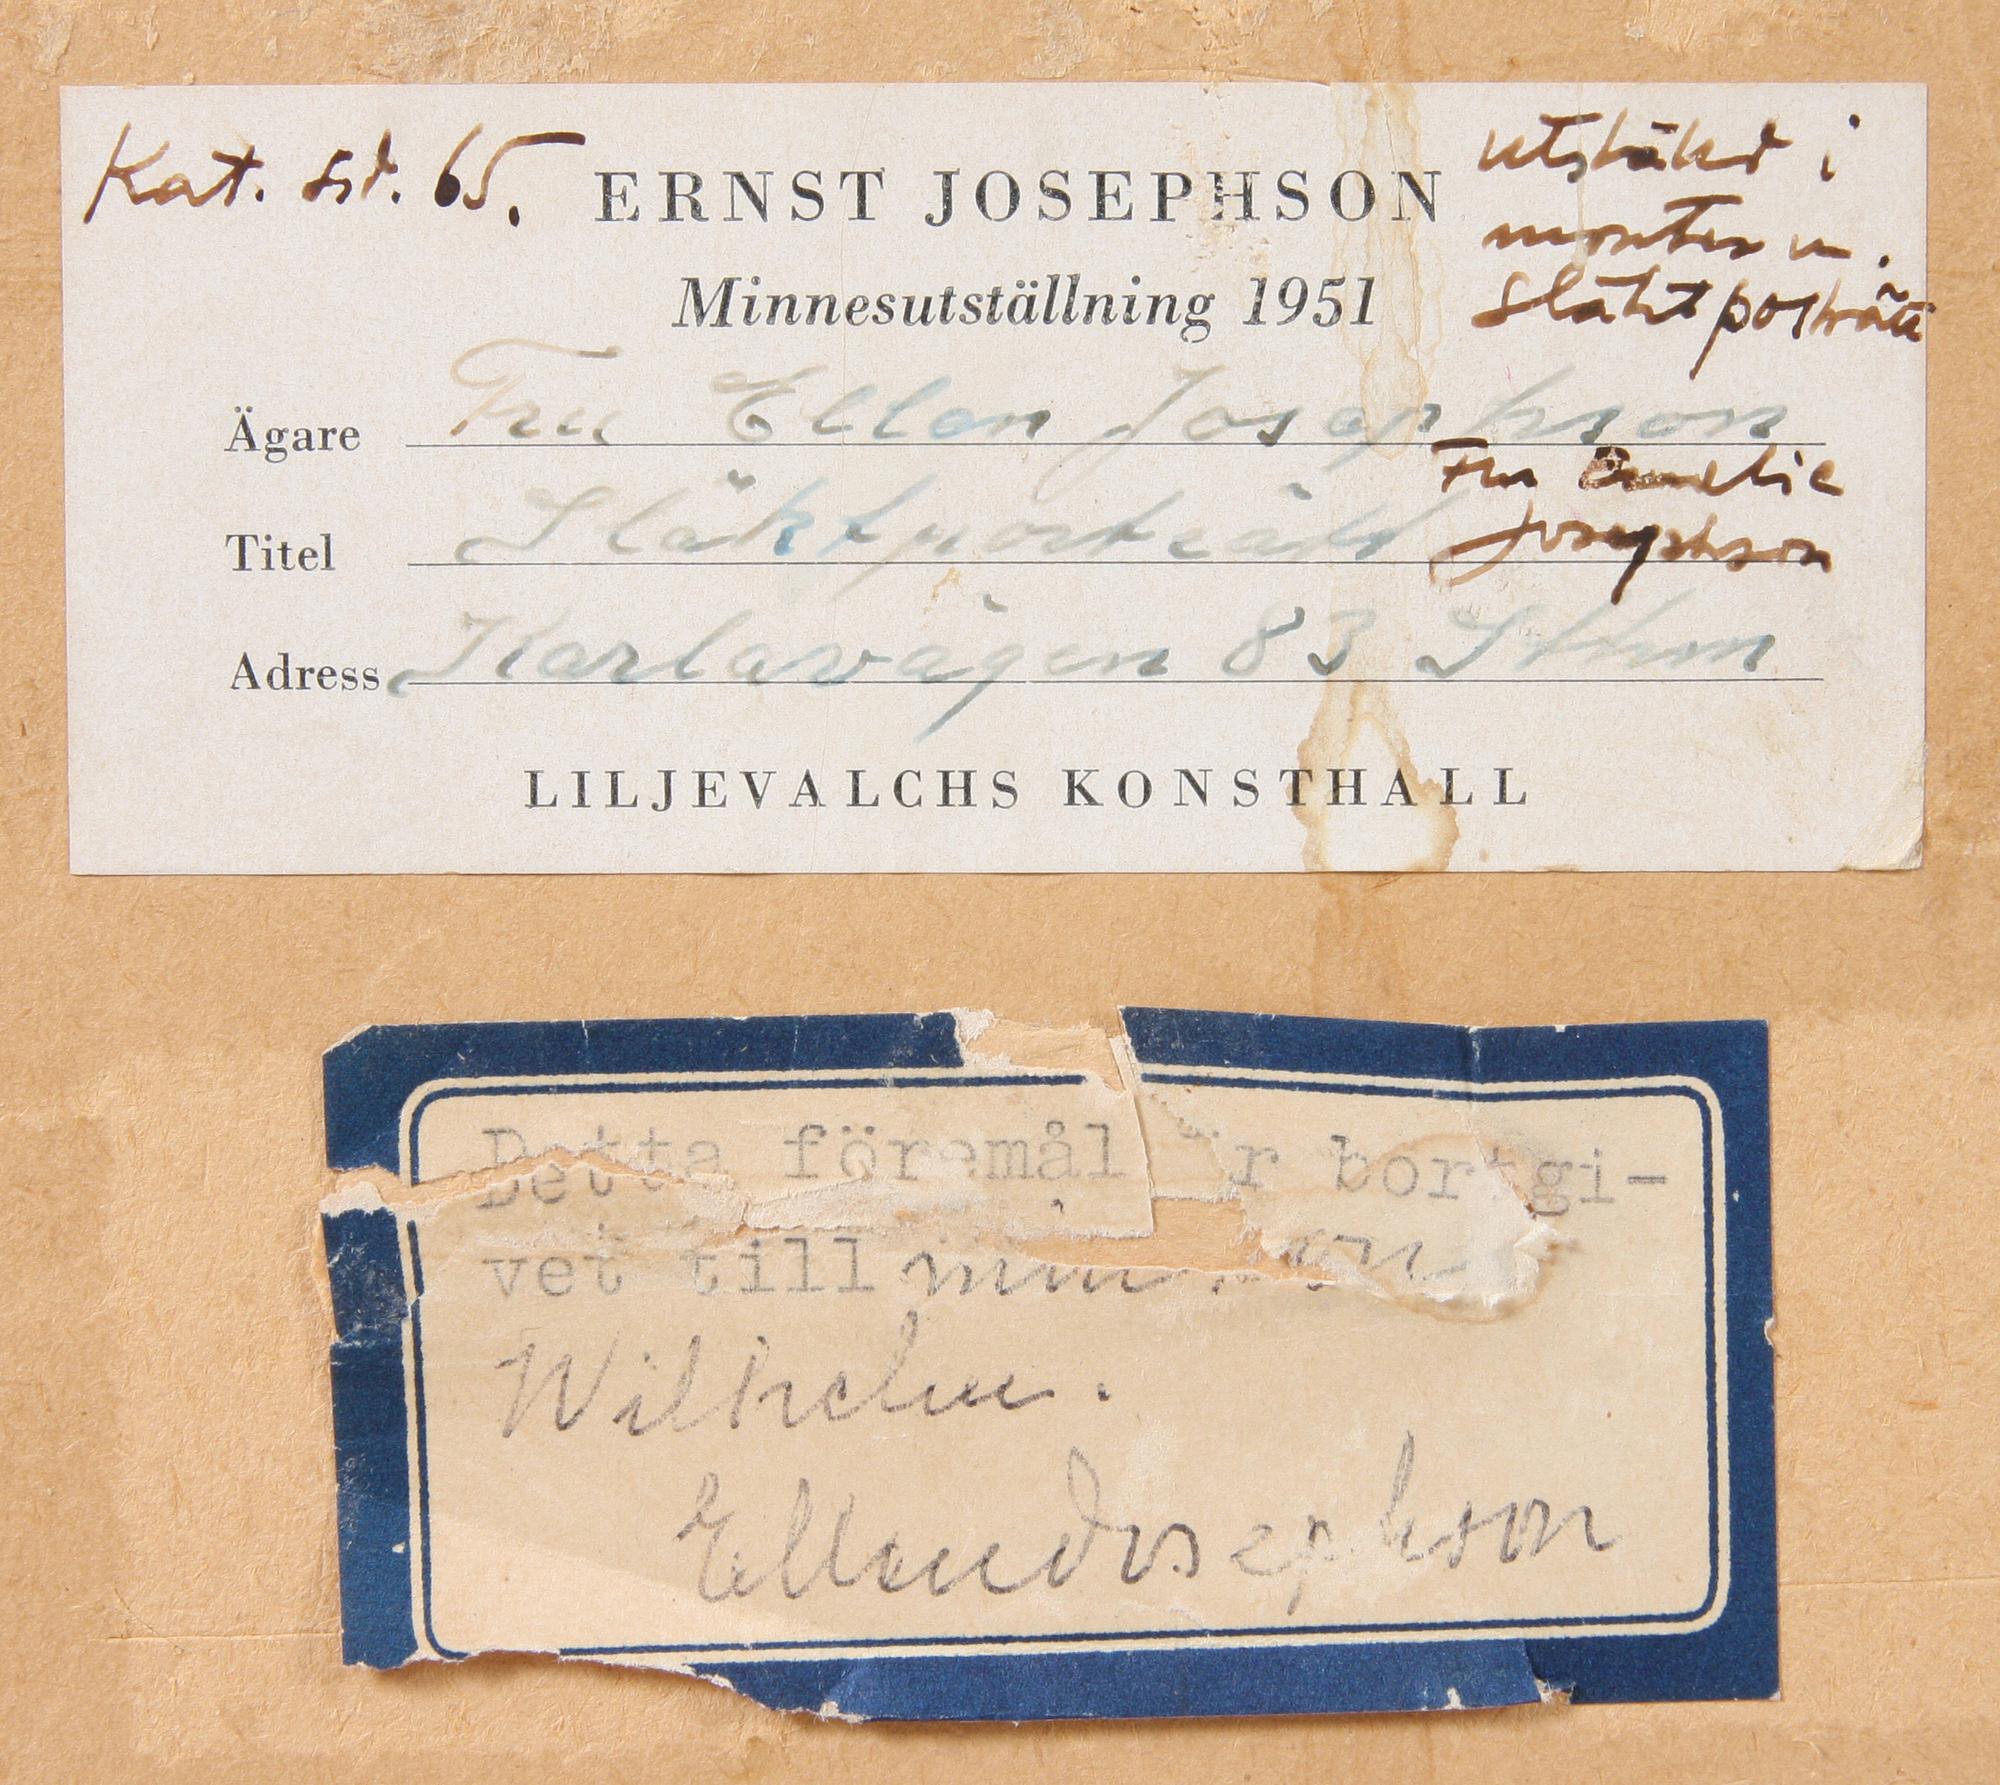 Kat. sid. 65.
ERNST JOSEPHSON
utställd i
monter m.
släktporträtt
Minnesutställning 1951
Ägare Fru Ellen Josephson
Titel Släktporträtt
Fru Amelie
Josephson
Adress Karlavägen 83 Sthlm
LILJEVALCHS KONSTHALL
Detta föremål är bortgi-
vet till min son
Wilhelm.
Ellen Josephson